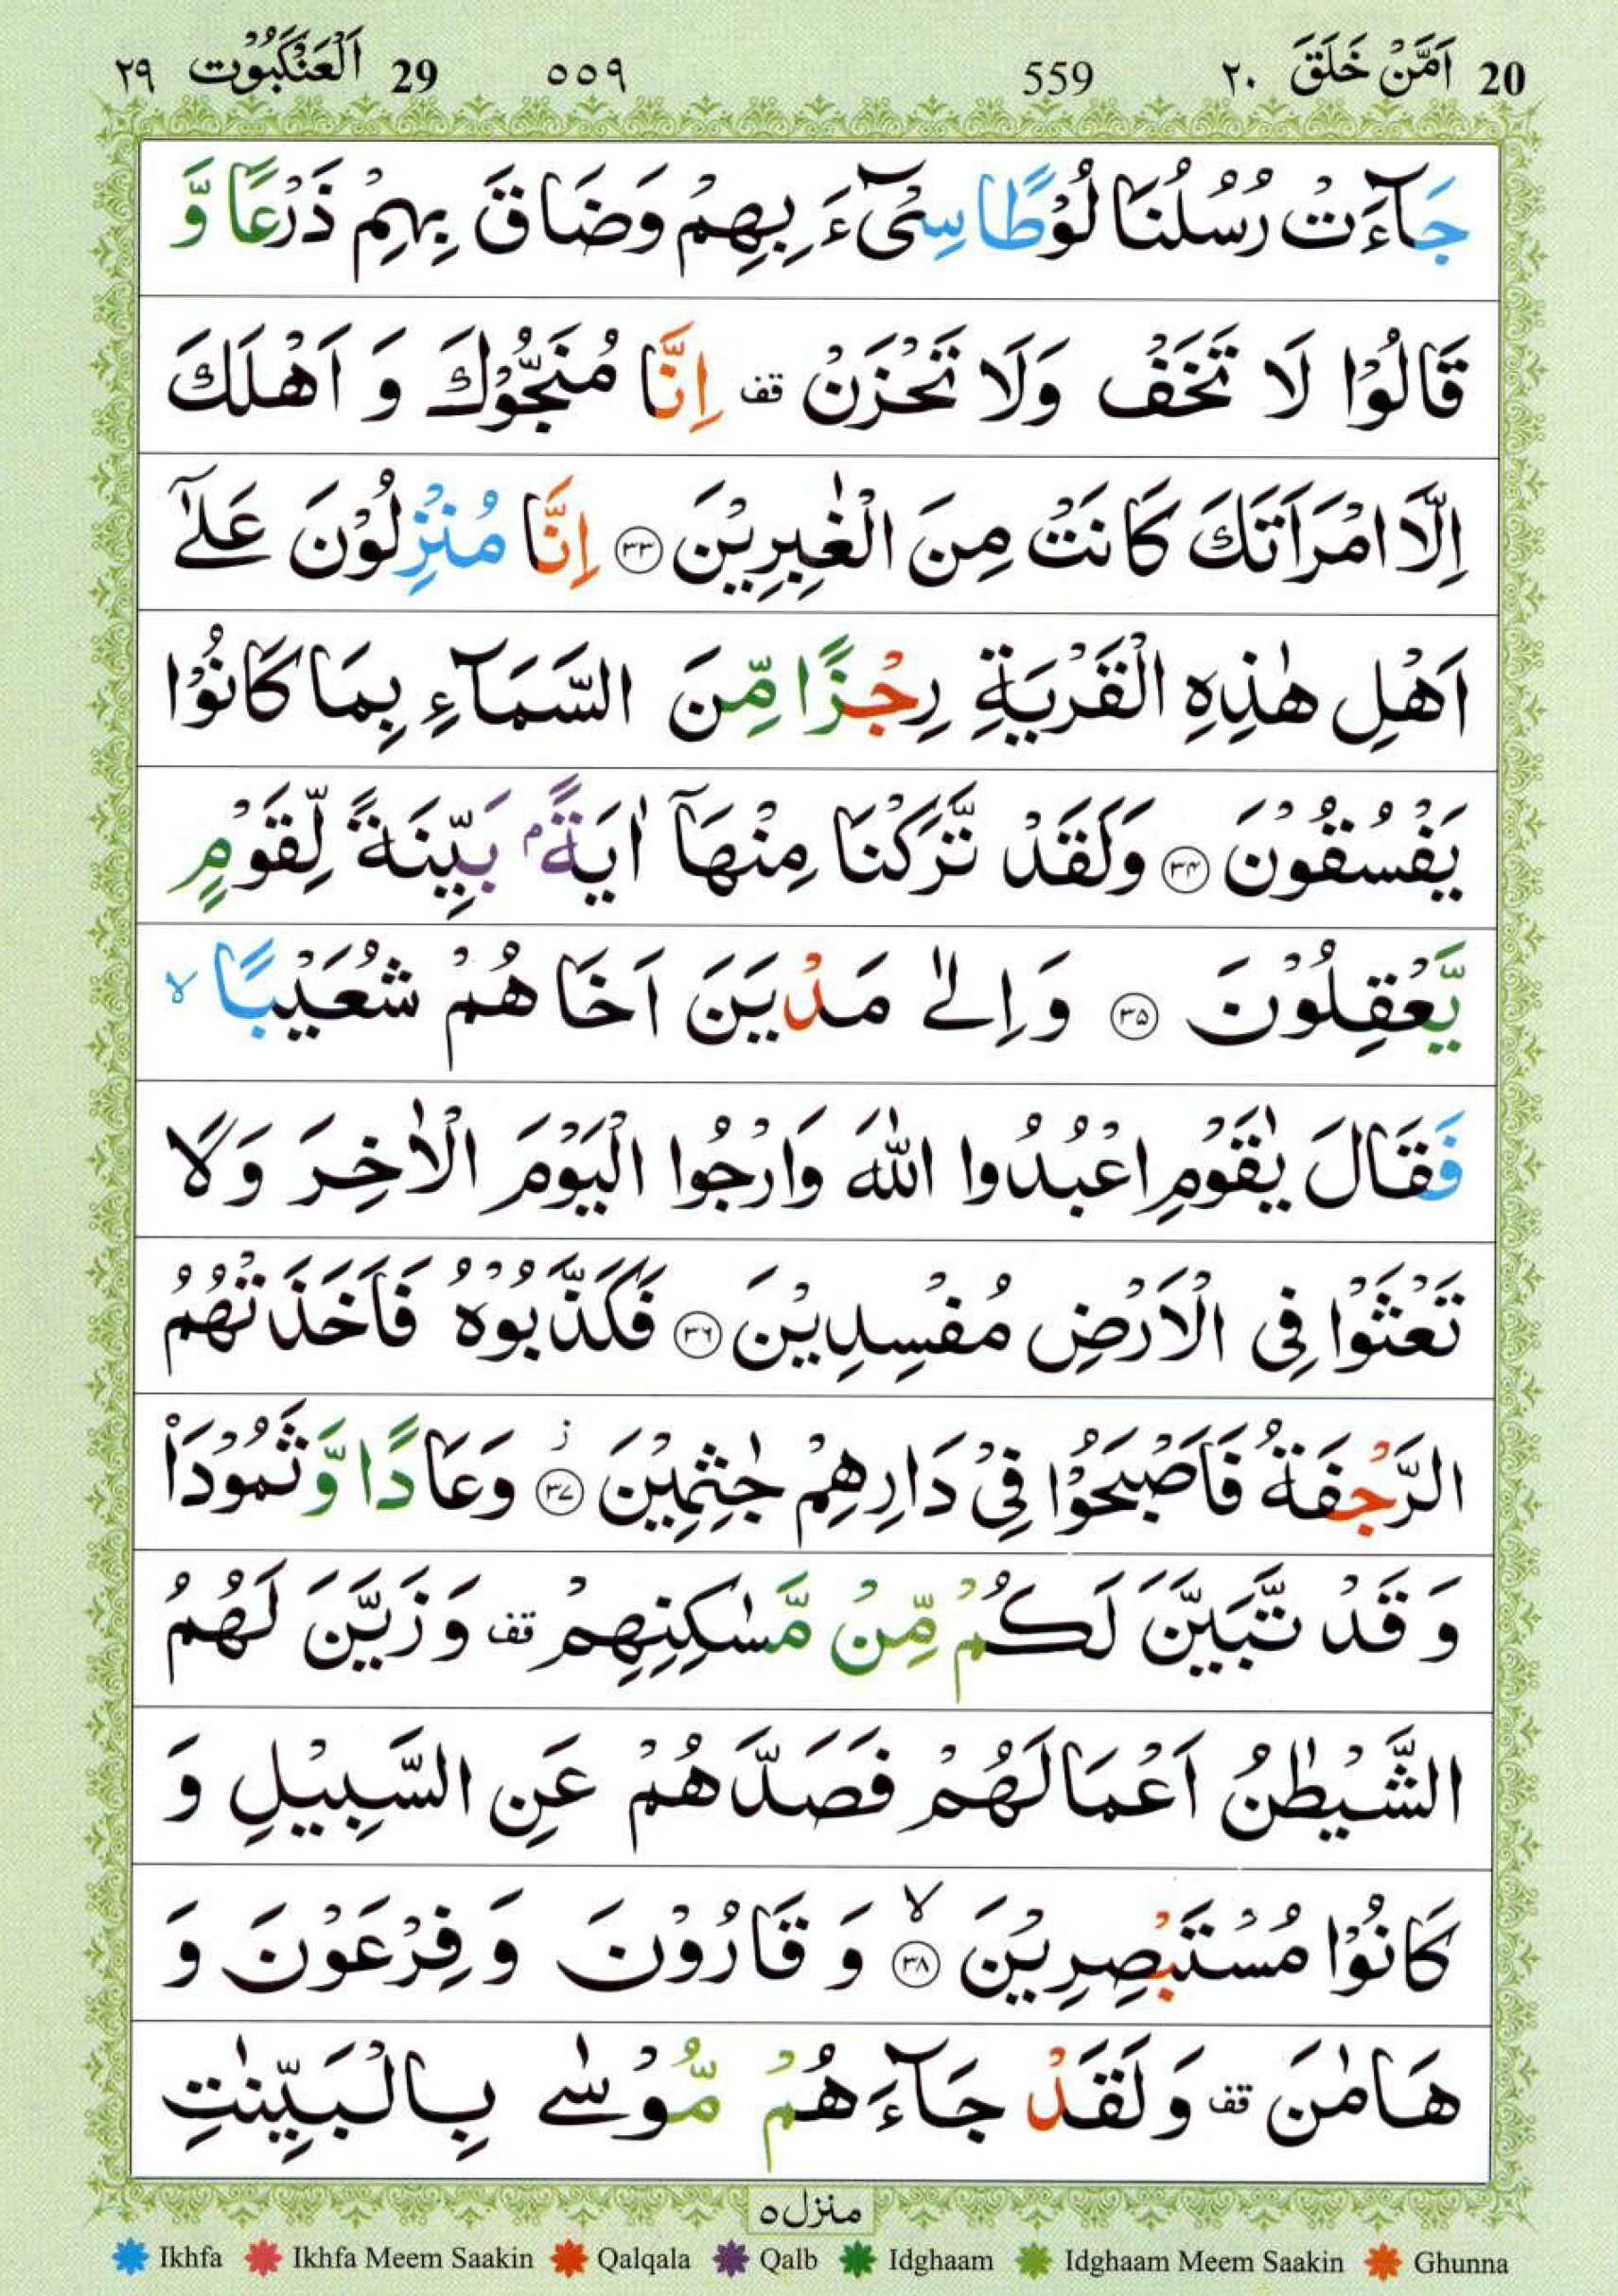 20 اَمَّنْ خَلَقَ ٢٠ 559 ٥٥٩ 29 اَلْعَنْكَبُوْت ٢٩
جَآءَتْ رُسُلُنَا لُوْطًا سِیْٓءَ بِهِمْ وَضَاقَ بِهِمْ ذَرْعًا وَّ
قَالُوْا لَا تَخَفْ وَلَا تَحْزَنْ قف اِنَّا مُنَجُّوْكَ وَ اَهْلَكَ
اِلَّا امْرَاَتَكَ كَانَتْ مِنَ الْغٰبِرِیْنَ ۳۳ اِنَّا مُنْزِلُوْنَ عَلٰۤی
اَهْلِ هٰذِهِ الْقَرْیَةِ رِجْزًا مِّنَ السَّمَآءِ بِمَا كَانُوْا
یَفْسُقُوْنَ ۳۴ وَلَقَدْ تَّرَكْنَا مِنْهَاۤ اٰیَةًۢ بَیِّنَةً لِّقَوْمٍ
یَّعْقِلُوْنَ ۳۵ وَ اِلٰی مَدْیَنَ اَخَاهُمْ شُعَیْبًا ۙ
فَقَالَ یٰقَوْمِ اعْبُدُوا اللّٰهَ وَارْجُوا الْیَوْمَ الْاٰخِرَ وَلَا
تَعْثَوْا فِی الْاَرْضِ مُفْسِدِیْنَ ۳۶ فَكَذَّبُوْهُ فَاَخَذَتْهُمُ
الرَّجْفَةُ فَاَصْبَحُوْا فِیْ دَارِهِمْ جٰثِمِیْنَ ز ۳۷ وَعَادًا وَّثَمُوْدَاۡ
وَ قَدْ تَّبَیَّنَ لَكُمْ مِّنْ مَّسٰكِنِهِمْ قف وَ زَیَّنَ لَهُمُ
الشَّیْطٰنُ اَعْمَالَهُمْ فَصَدَّهُمْ عَنِ السَّبِیْلِ وَ
كَانُوْا مُسْتَبْصِرِیْنَ ۙ ۳۸ وَ قَارُوْنَ وَ فِرْعَوْنَ وَ
هَامٰنَ قف وَلَقَدْ جَآءَهُمْ مُّوْسٰی بِالْبَیِّنٰتِ
منزل ٥
Ikhfa Ikhfa Meem Saakin Qalqala Qalb Idghaam Idghaam Meem Saakin Ghunna